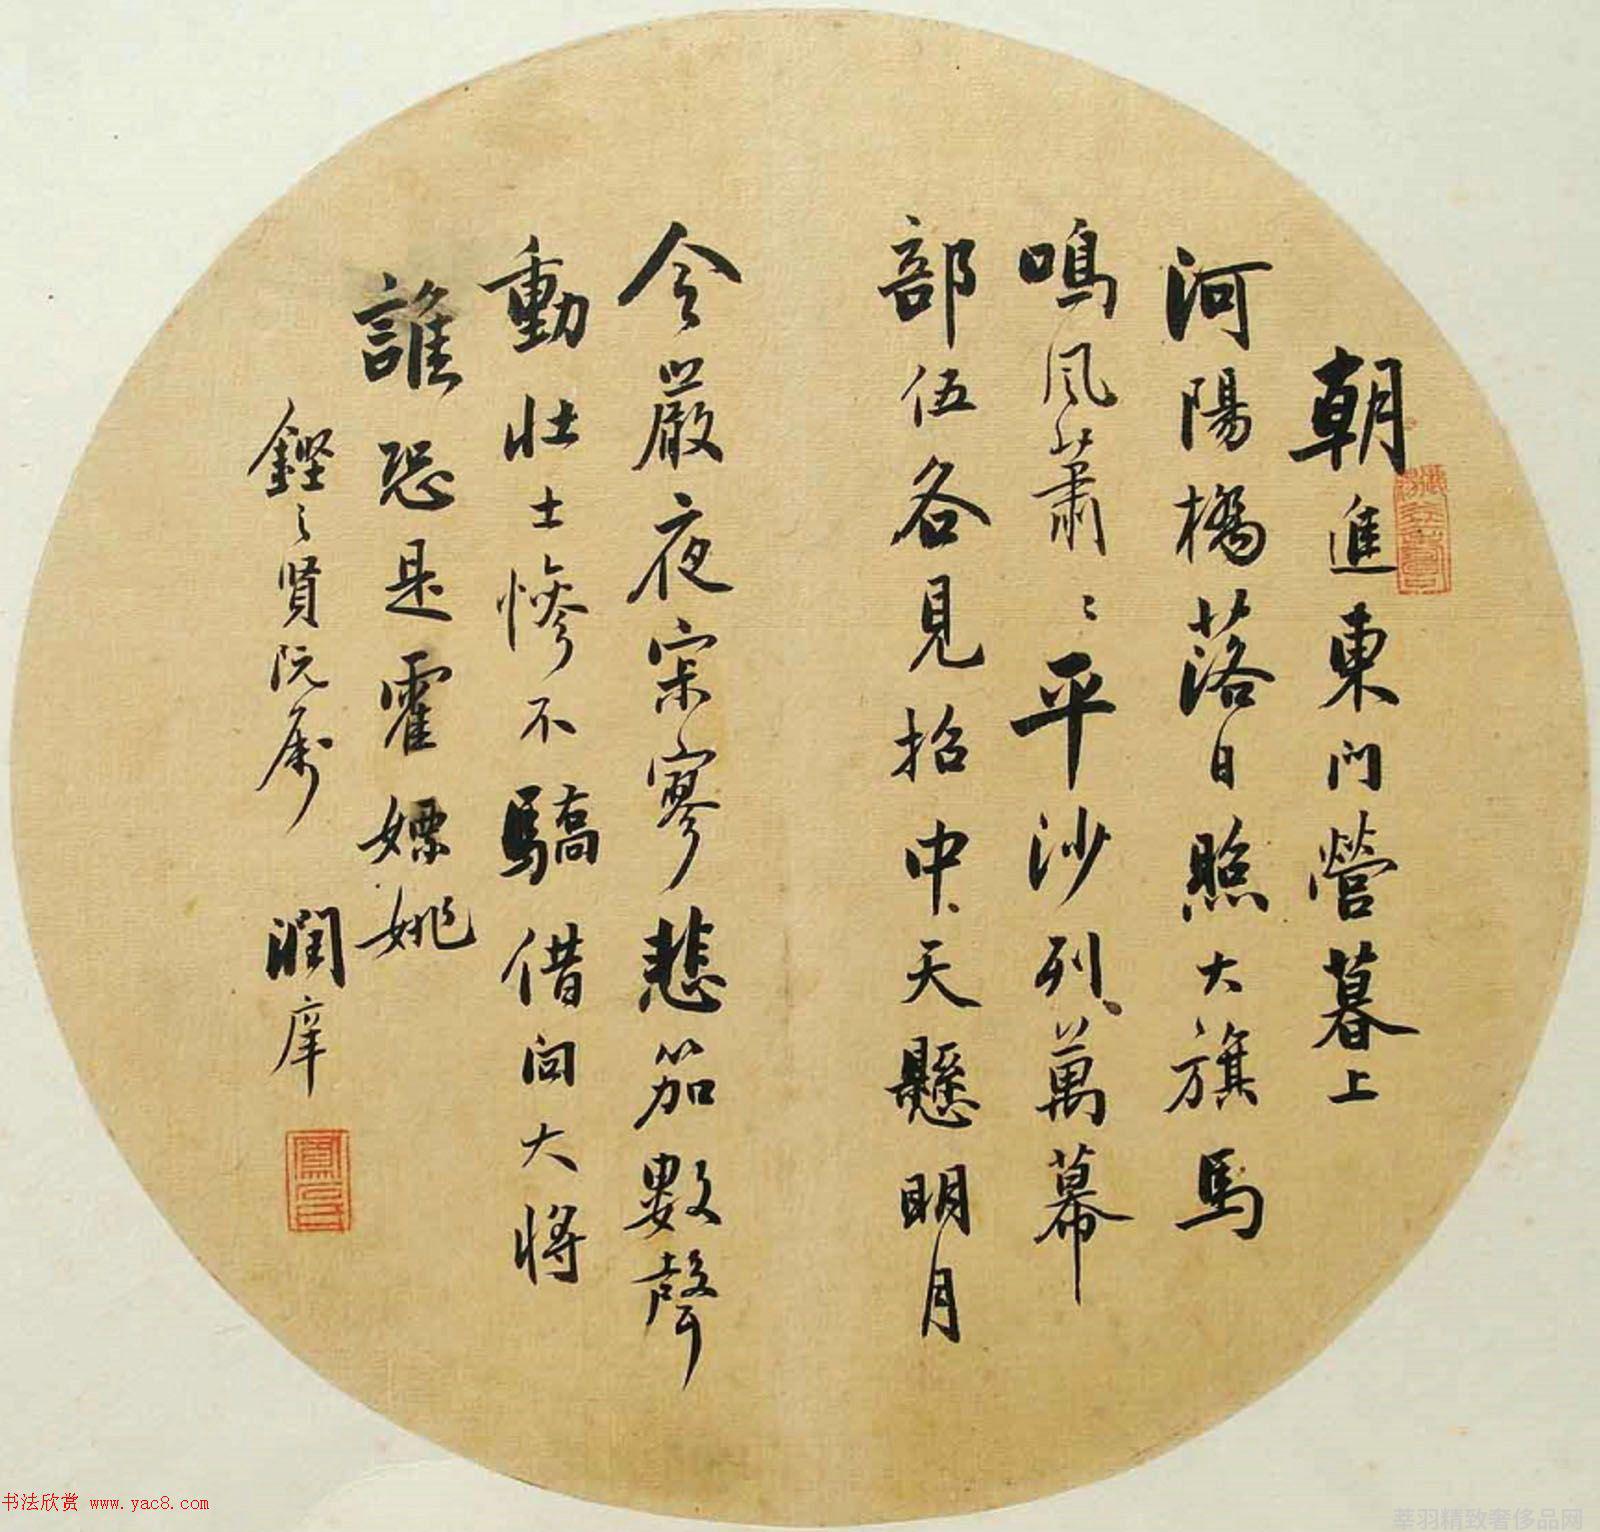 朝進東門營暮上
河陽橋落日照大旗馬
鳴風蕭〻平沙列萬幕
部伍各見招中天懸明月
令嚴夜寂寥悲笳數聲
動壯士慘不驕借问大將
誰恐是霍嫖姚
鏗之賢阮屬 潤庠
书法欣赏 www.yac8.com
莘羽精致奢侈品网